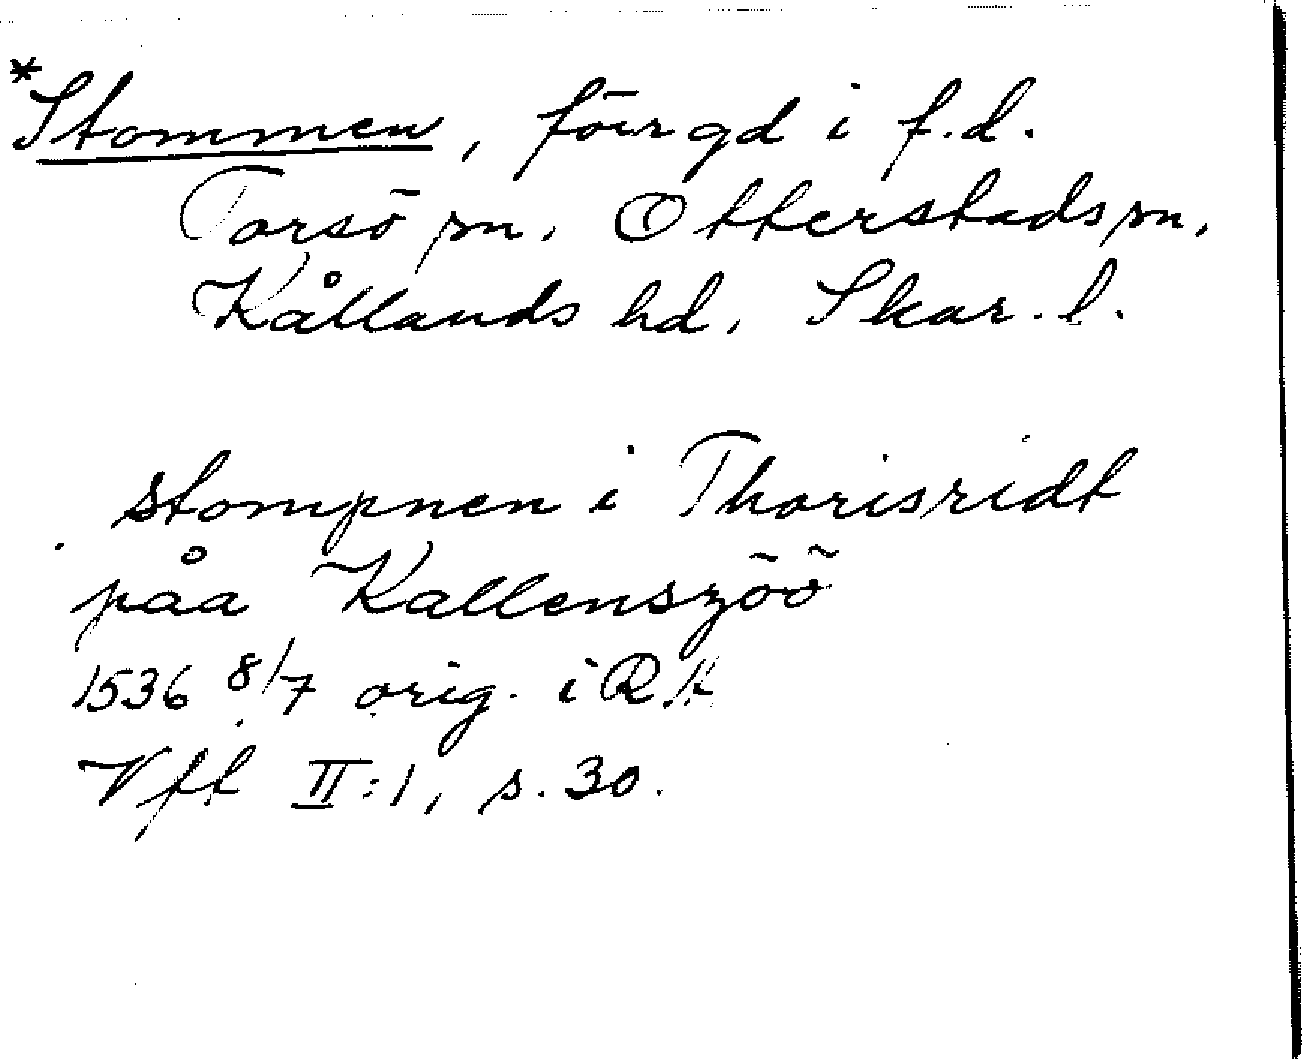 *Stommen, försv gd i f.d.
Torsö sn, Otterstads sn,
Kållands hd, Skar. l.
stompnen i Thorisridt
påa Kallenszöö
1536 8/7 orig. i RA
Vft II:1, s. 30.